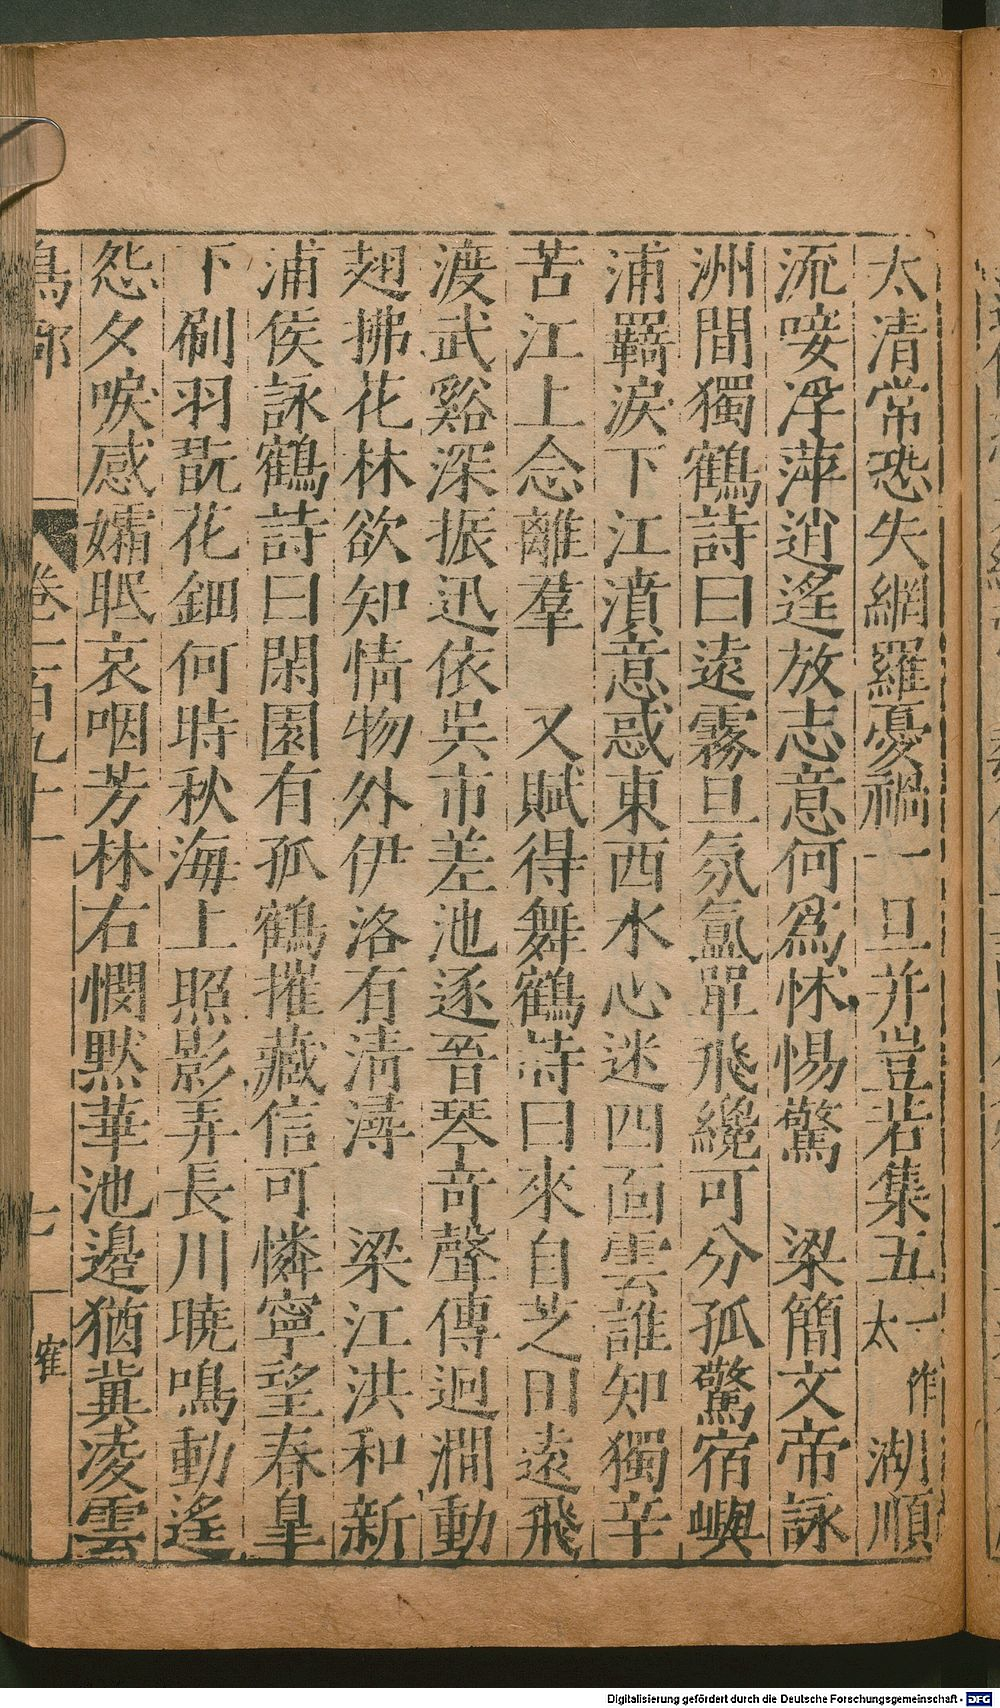 太清常恐失網羅憂禍一旦并豈若集五一作太湖順
流唼浮萍逍遙放志意何爲怵惕驚　梁簡文帝詠
洲間獨鶴詩曰遠霧旦氛氳單飛纔可分孤驚宿嶼
浦羇淚下江濆意惑東西水心迷四面雲誰知獨辛
苦江上念離羣　又賦得舞鶴詩曰來自芝田遠飛
渡武谿深振迅依吳市差池逐晉琴奇聲傳迥澗動
翅拂花林欲知情物外伊洛有清潯　梁江洪和新
浦侯詠鶴詩曰閑園有孤鶴摧藏信可憐寧望春皐
下刷羽翫花鈿何時秋海上照影弄長川曉鳴動遙
怨夕唳感孀眠哀咽芳林右憫默華池邉猶冀凌雲
鳥部
卷一百九十一
七
寉
Digitalisierung gefördert durch die Deutsche Forschungsgemeinschaft - DFG